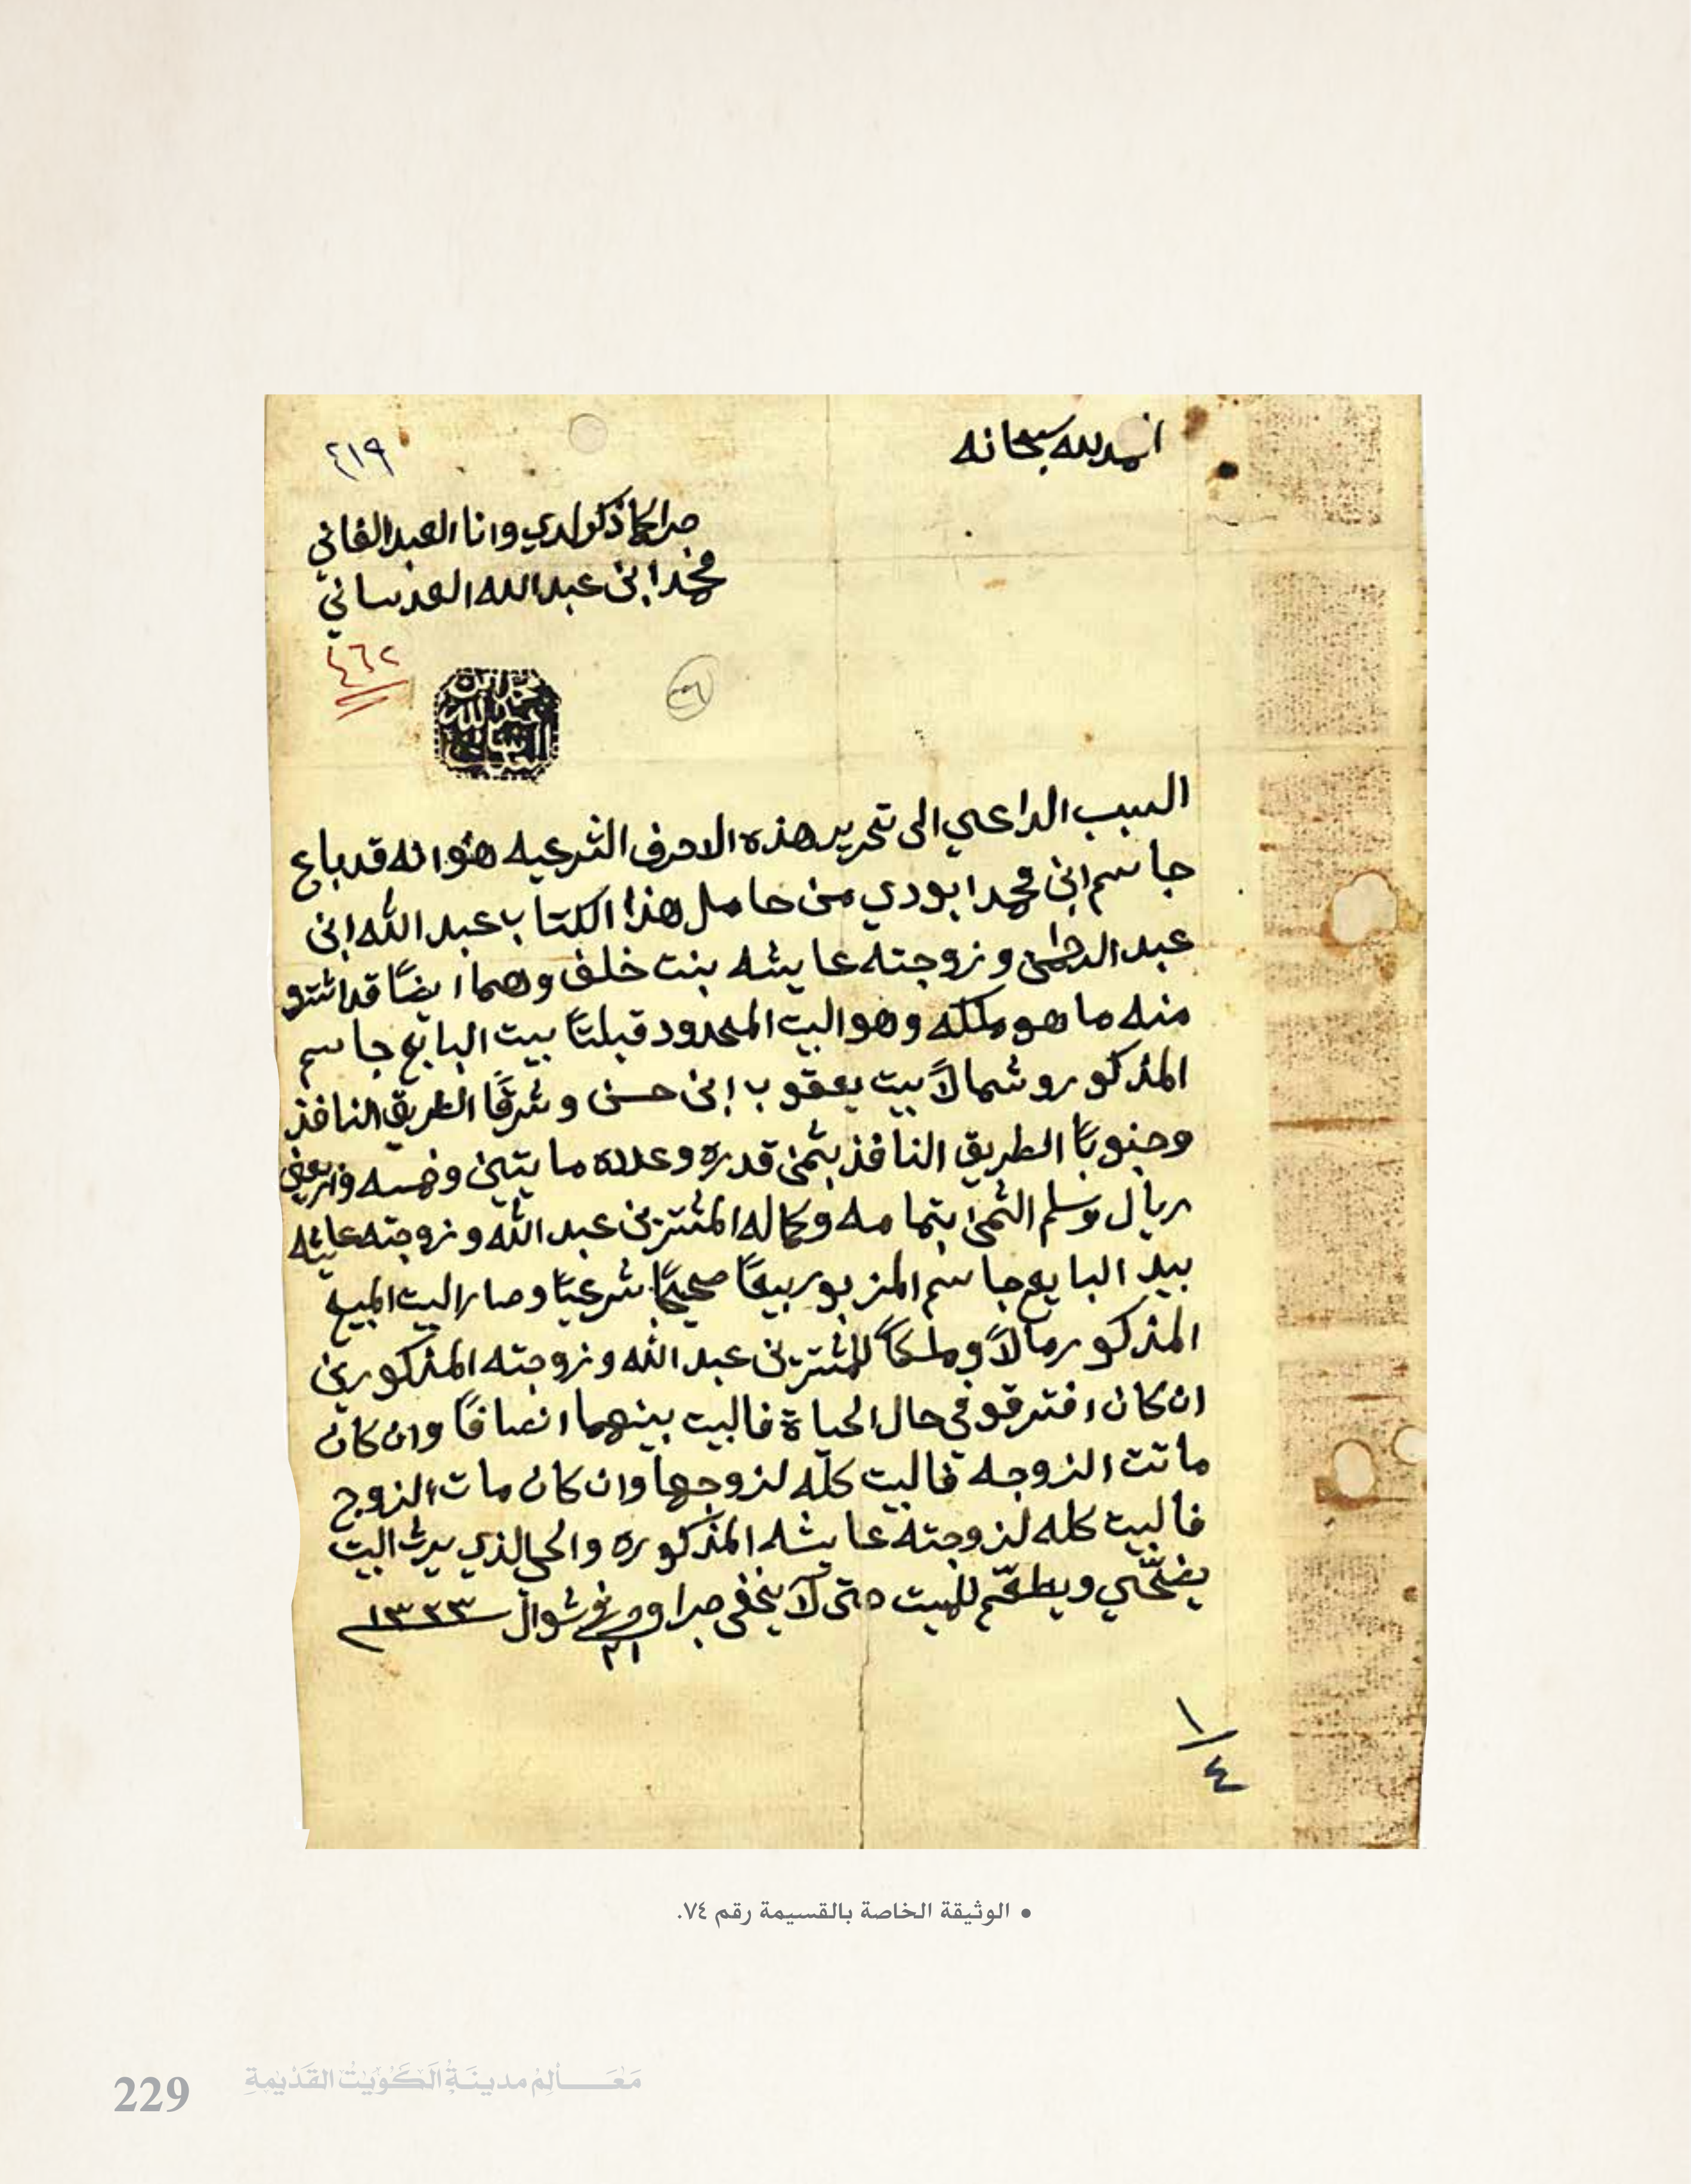 الحمد لله سبحانه
٤١٩
صدر كما ذكر لدي وانا العبد الفاني
محمد ابن عبدالله العدساني
٤٦٢
السبب الداعي الى تحرير هذه الاحرف الشرعيه هو انه قد باع
جاسم ابن محمد ابودي من حامل هذا الكتاب عبد الله ابن
عبد الرحمن وزوجته عايشه بنت خلف وهما ايضًا قد اشترو
منه ما هو ملكه وهو البيت المحدود قبلتًا بيت البايع جاسم
المذكور وشمالاً بيت يعقوب ابن حسن وشرقًا الطريق النافذ
وجنوبًا الطريق النافذ بثمن قدره وعدده مايتين وخمسه واربعين
ريال وسلم الثمن بتمامه وكماله المشترين عبد الله وزوجته عايشه
بيد البايع جاسم المزبور بيعًا صحيحًا شرعيًا وصار البيت المبيع
المذكور مالاً وملكاً للمشترين عبد الله وزوجته المذكورين
ان كان افترقو في حال الحياة فالبيت بينهما انصافًا وان كان
ماتت الزوجه فالبيت كله لزوجها وان كان مات الزوج
فالبيت كله لزوجته عايشه المذكوره والحي الذي يرث البيت
يضحّي ويطعّم للميت حتى لا يخفى جرا وحرر في ٢١ شوال ١٣٢٣
١/٤
• الوثيقة الخاصة بالقسيمة رقم ٧٤.
229 مَعَالِم مدينَة الكُوَيْت القَدِيمَة